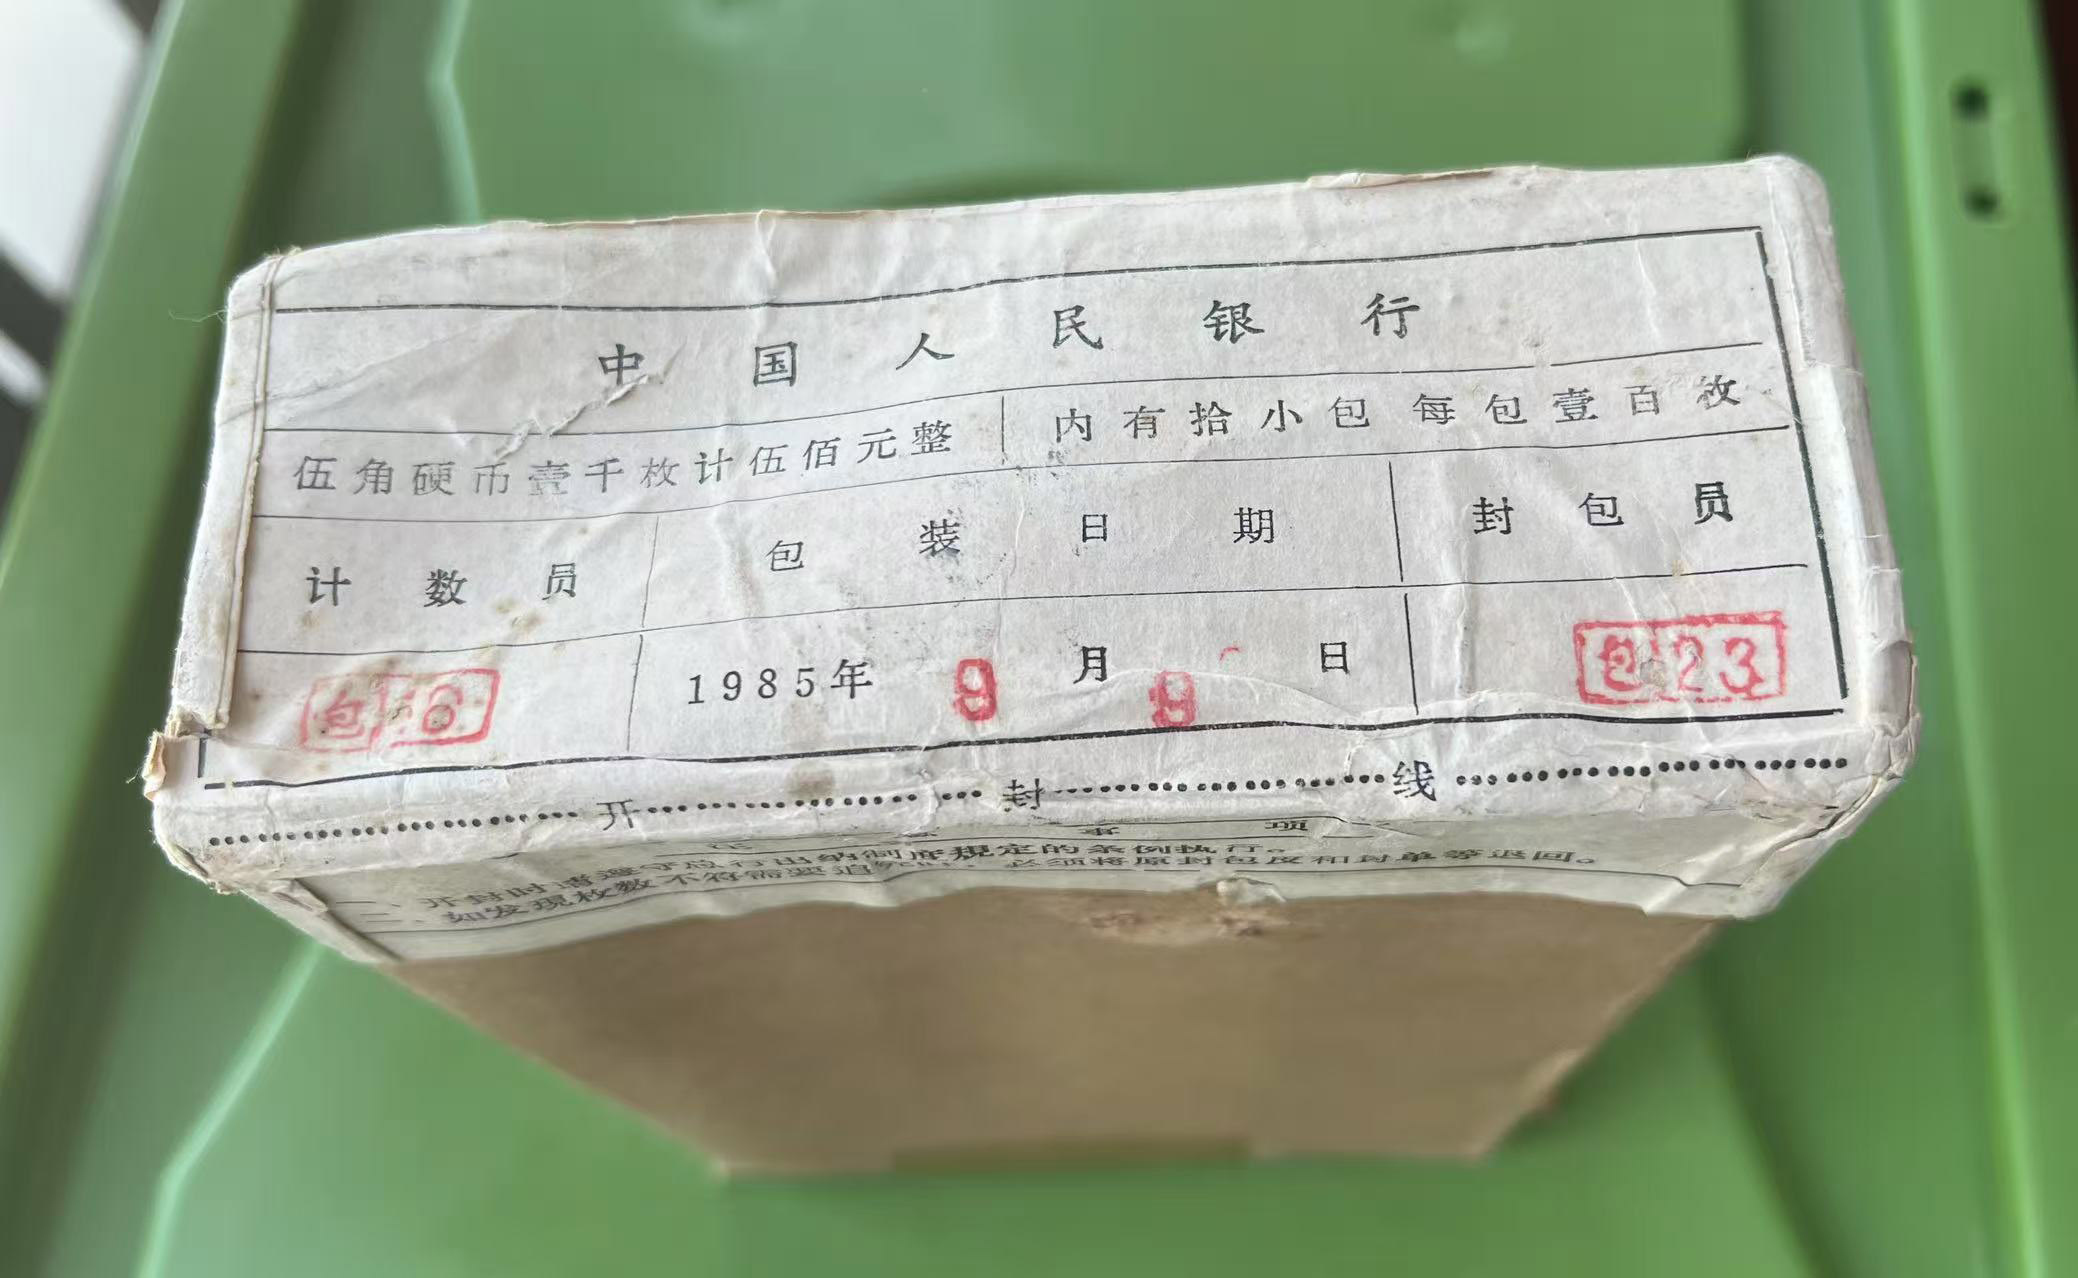 中国人民银行
伍角硬币壹千枚计伍佰元整 内有拾小包每包壹百枚
计数员 包装日期 封包员
包 6 1985年 9 月 9 日 包 23
开封线
事项
一、开封时请遵守总行出纳制度规定的条例执行。
二、如发现枚数不符需要追究时，必须将原封包皮和封单等退回。